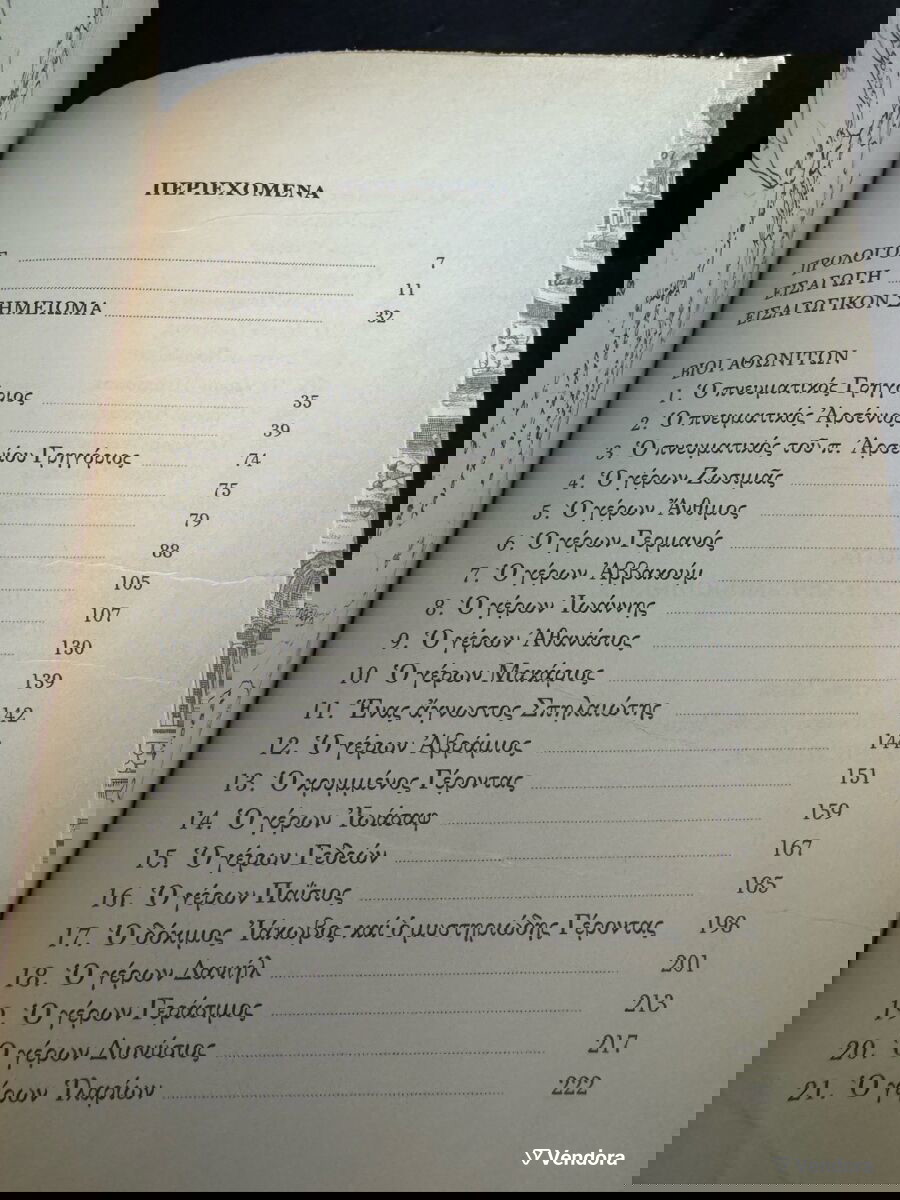 ΠΕΡΙΕΧΟΜΕΝΑ
ΠΡΟΛΟΓΟΣ 7
ΕΙΣΑΓΩΓΗ 11
ΕΙΣΑΓΩΓΙΚΟΝ ΣΗΜΕΙΩΜΑ 32
ΒΙΟΙ ΑΘΩΝΙΤΩΝ
1. Ὁ πνευματικός Γρηγόριος 35
2. Ὁ πνευματικός Ἀρσένιος 39
3. Ὁ πνευματικός τοῦ π. Ἀρσενίου Γρηγόριος 74
4. Ὁ γέρων Ζωσιμᾶς 75
5. Ὁ γέρων Ἄνθιμος 79
6. Ὁ γέρων Γερμανός 88
7. Ὁ γέρων Ἀββακούμ 105
8. Ὁ γέρων Ἰωάννης 107
9. Ὁ γέρων Ἀθανάσιος 130
10. Ὁ γέρων Μακάριος 139
11. Ἕνας ἄγνωστος Σπηλαιώτης 142
12. Ὁ γέρων Ἀβράμιος 144
13. Ὁ κρυμμένος Γέροντας 151
14. Ὁ γέρων Ἰωάσαφ 159
15. Ὁ γέρων Γεδεών 167
16. Ὁ γέρων Παΐσιος 185
17. Ὁ δόκιμος Ἰάκωβος καί ὁ μυστηριώδης Γέροντας 198
18. Ὁ γέρων Δανιήλ 201
19. Ὁ γέρων Γεράσιμος 213
20. Ὁ γέρων Διονύσιος 217
21. Ὁ γέρων Ἱλαρίων 222
Vendora